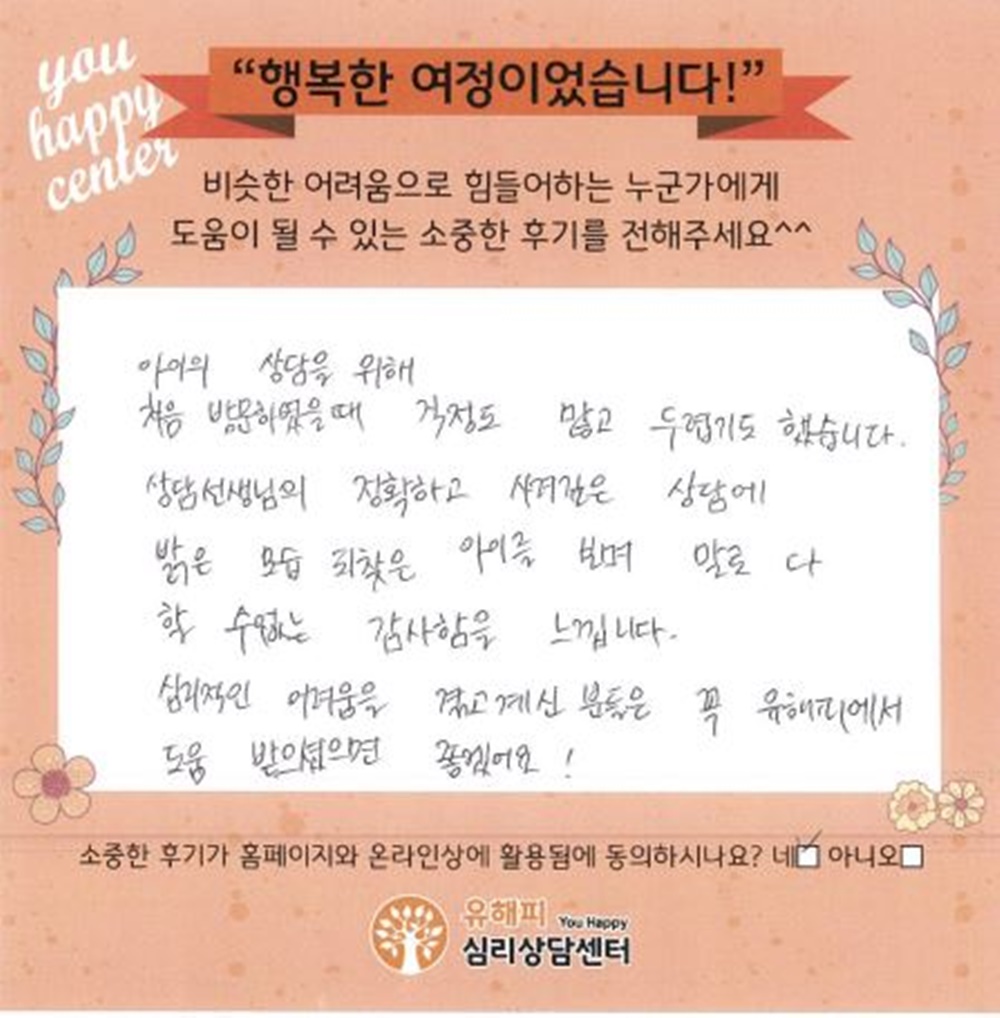 you
happy
center
“행복한 여정이었습니다!”
비슷한 어려움으로 힘들어하는 누군가에게
도움이 될 수 있는 소중한 후기를 전해주세요^^
아이의 상담을 위해
처음 방문하였을때 걱정도 많고 두렵기도 했습니다.
상담선생님의 정확하고 사려깊은 상담에
밝은 모습 되찾은 아이를 보며 말로 다
할 수없는 감사함을 느낍니다.
심리적인 어려움을 겪고계신 분들은 꼭 유해피에서
도움 받으셨으면 좋겠어요!
소중한 후기가 홈페이지와 온라인상에 활용됨에 동의하시나요? 네☑ 아니오☐
유해피 You Happy
심리상담센터